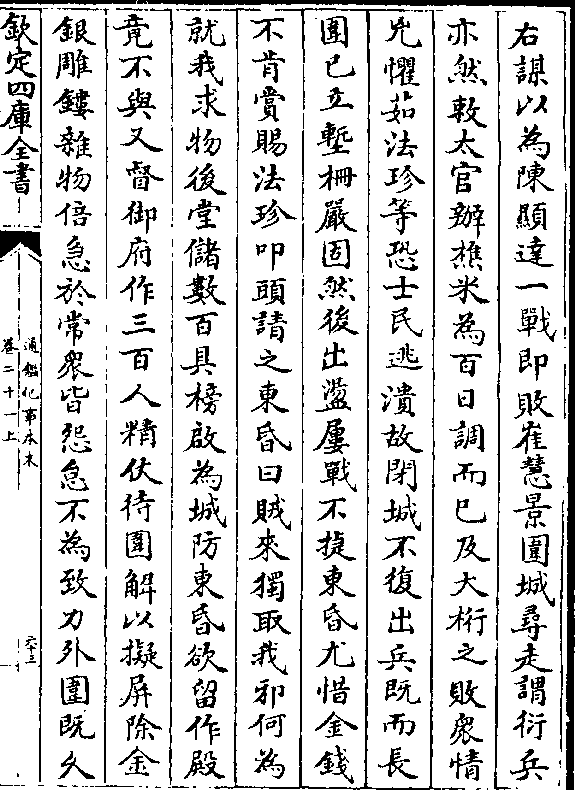 右謀以為陳顯達一戰即敗崔慧景圍城尋走謂衍兵
亦然敕太官辦樵米為百日調而已及大桁之敗衆情
兇懼茹法珍等恐士民逃潰故閉城不復出兵既而長
圍已立塹柵嚴固然後出盪屢戰不捷東昏尤惜金錢
不肯賞賜法珍叩頭請之東昏曰賊來獨取我邪何為
就我求物後堂儲數百具榜啟為城防東昏欲留作殿
竟不與又督御府作三百人精仗待圍解以擬屏除金
銀雕鏤雜物倍急於常衆皆怨怠不為致力外圍既久
欽定四庫全書
通鑑紀事本末
卷二十一上
六十三